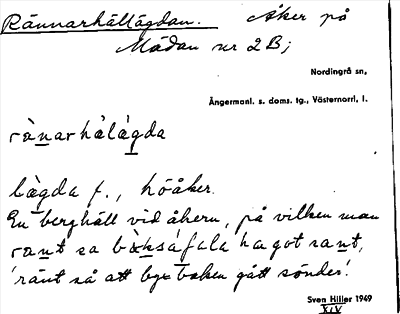 Rännarhällägdan. Åker på
Mädan nr 2B;
Nordingrå sn,
Ångermanl. s. doms. tg., Västernorrl. l.
rànarhålàgda
làgda f., höåker.
En berghäll vid åkern, på vilken man
rant sa hagot sant,
'ränt så att byxbaken gått sönder.'
Sven Hiller 1949
XIV